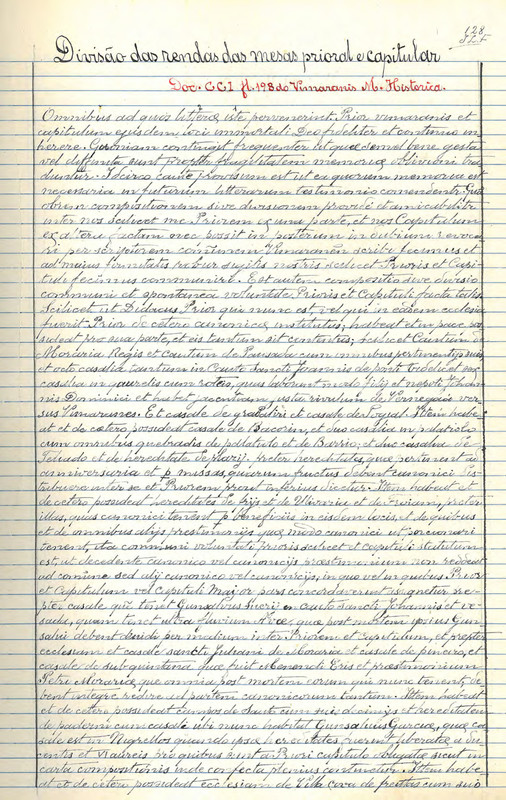 128
Divisão das rendas das mesas prioral e capitular
Doc. CCI fl. 198 do Vimaranis M. Historica.
Omnibus ad quos litteræ istæ pervenerint, Prior vimaranis et
capitulum ejusdem loci immortali Deo fideliter et continuo in-
herere. Quoniam contingit frequenter ut quæ semel bene gesta
vel definita sunt propter fragilitatem memoriæ oblivioni tra-
dantur. Idcirco caute provisum est ut ea quorum memoria est
necessaria in futurum litterarum testimonio comendentur. Qua
obrem compositionem sive divisionem provide et amicabiliter
inter nos scilicet me Priorem ex una parte, et nos Capitulum
ex altera factum nec possit in posterum in dubium revoca-
ri per scriptorem comunem Vimaranen scribi fecimus et
ad maius firmitatis robur sigillis nostris scilicet Prioris et Capi-
tuli fecimus communiri. Est autem compositio sive divisio
communi et spontanea voluntate Prioris et Capituli facta talis.
Scilicet ut Didacus Prior qui nunc est, vel qui in eadem ecclesia
fuerit Prior de cetero canonice institutus, habeat et in pace pos
sideat pro sua parte, et eis tantum sit contentus; scilicet Cautum de
Moraria Regis et Cautum de Pausada cum omnibus pertinentijs suis
et octo casalia tantum in Cauto Sancti Joannis de ponte
casalia in saurelis cum roteis, quas laborunt modo filij et nepoti Johan-
nis Dominici et habet jacentiam justa rivulum de Fornegais ver-
sus Vimarunes. Et casale de et casale de Royal. Item habe-
at et de cetero possideat casale de Baccein, et duo casalia in palatiolo
cum omnibus quebradis de pallatiolo et de Barrio; et duo casalia de
Teluado et de hereditate de preter hereditates, quæ pertinent ad
anniversaria et p. missas, quorum fructus debent canonici dis-
tribuere inter se et Priorem prout inferius dicetur. Item habeat et
de cetero possideat hereditates de et de et de preter
illas, quas canonici tenent p. beneficiis in eisdem locis, et de quibus
et de omnibus alijs prestimonijs quæ modo canonici vel porcionarii
tenent, ita communi voluntate prioris scilicet et capituli statutum
est, ut decedente canonico vel canonicijs præstimonium non redeat
ad comune sed alij canonico vel canonicijs, in quo vel in quibus. Prior
et Capitulum vel Capituli Major pars concordaverint
casale quod tenet Gunsalvus in cauto Sancti Johannis et ve-
sada, quam tenet ultra fluvium Avæ, quæ post mortem ipsius Gun-
salvi debent dividi per medium inter Priorem et Capitulum, et preter
ecclesiam et casale sancte Juliani de Moraria et casale de pineiro, et
casale de sub quintena quæ fuit Menendi et præstimonium
Petri Morariæ quæ omnia post mortem eorum qui nunc tenent, de-
bent integre redire ad partem canonicorum tantum. Item habeat
et de cetero possideat campos de Sauto cum suis et hereditatem
de paderni cum casale ubi nunc habitat Gunsalvus Garciæ, quæ ca-
sale est in Nigrellos quando ipsæ hereditates fuerint liberatæ a du-
centis et Maureis pro quibus sunt a Priori capitulo obligatæ sicut in
carta compositionis inde confecta plenius continetur. Item habe-
at et de cetero possideat ecclesiam de Villa cova de freitas cum suis